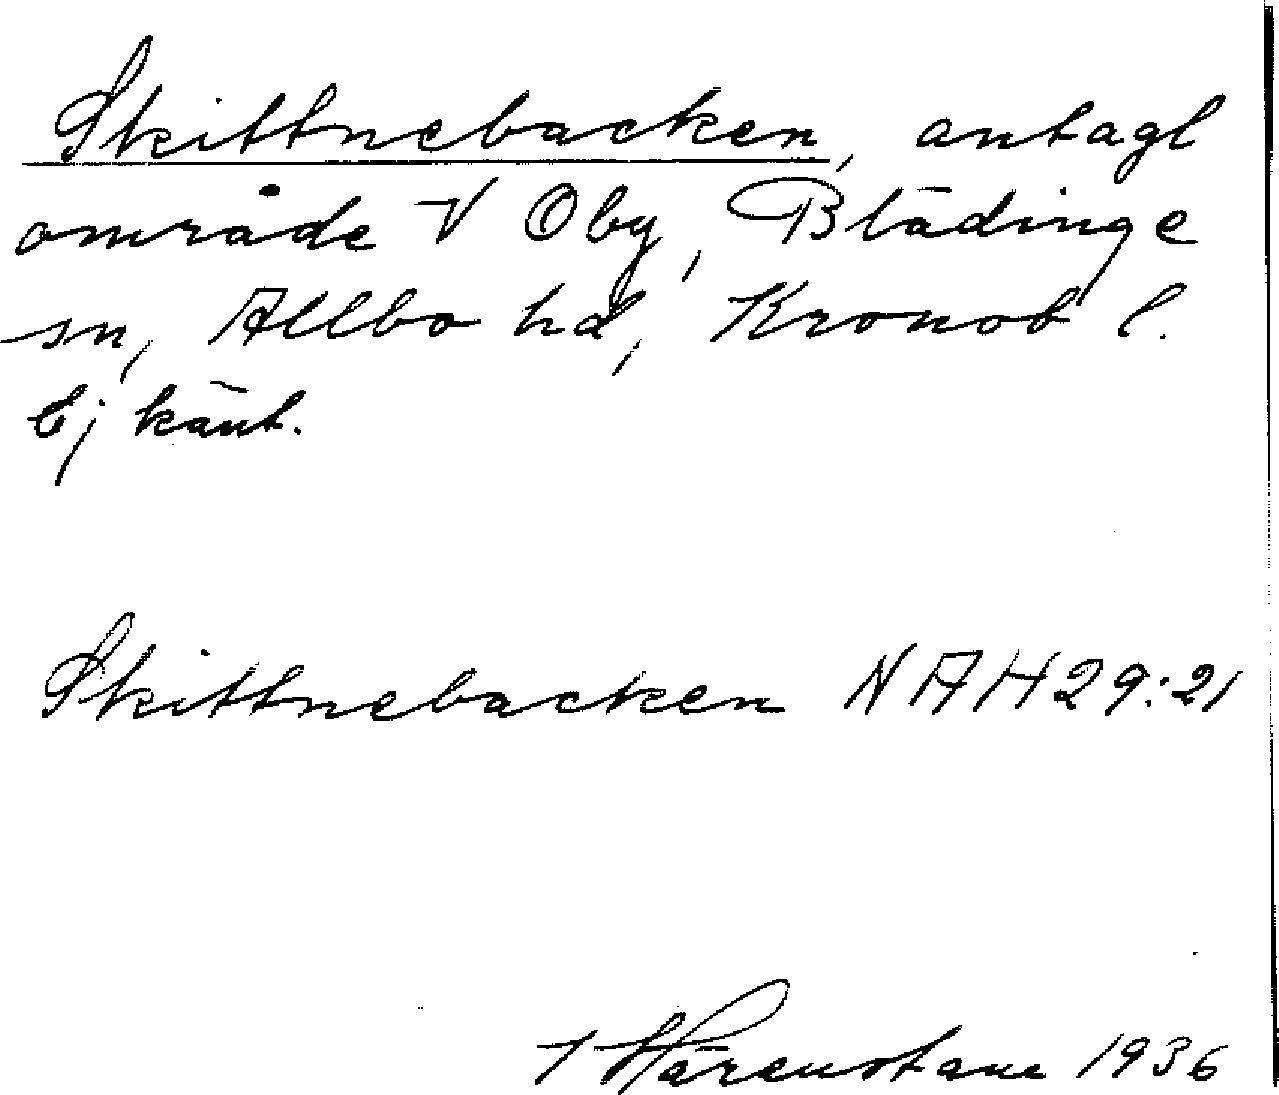 Skittnebacken, antagl
område V Oby, Blädinge
sn, Allbo hd, Kronob l.
Ej känt.
Skittnebacken NAH29:21
1936